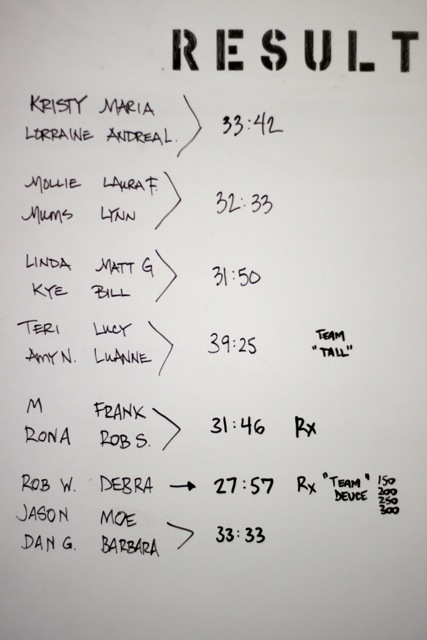 RESULT
KRISTY MARIA
LORRAINE ANDREA L.
33:42
MOLLIE LAURA F.
MUMS LYNN
32:33
LINDA MATT G
KYE BILL
31:50
TERI LUCY
AMY N. LUANNE
39:25
TEAM
"TALL"
M FRANK
RONA ROB S.
31:46 Rx
ROB W. DEBRA → 27:57 Rx "TEAM"
DEUCE
150
200
250
300
JASON MOE
DAN G. BARBARA
33:33